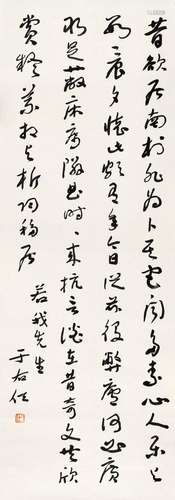 昔欲居南村非為卜其宅聞多素心人樂與
數晨夕懷此頗有年今日從茲役弊廬何必廣
取足蔽床席隣曲時時來抗言談在昔奇文共欣
賞疑義相與析 陶移居
若我先生
于右任